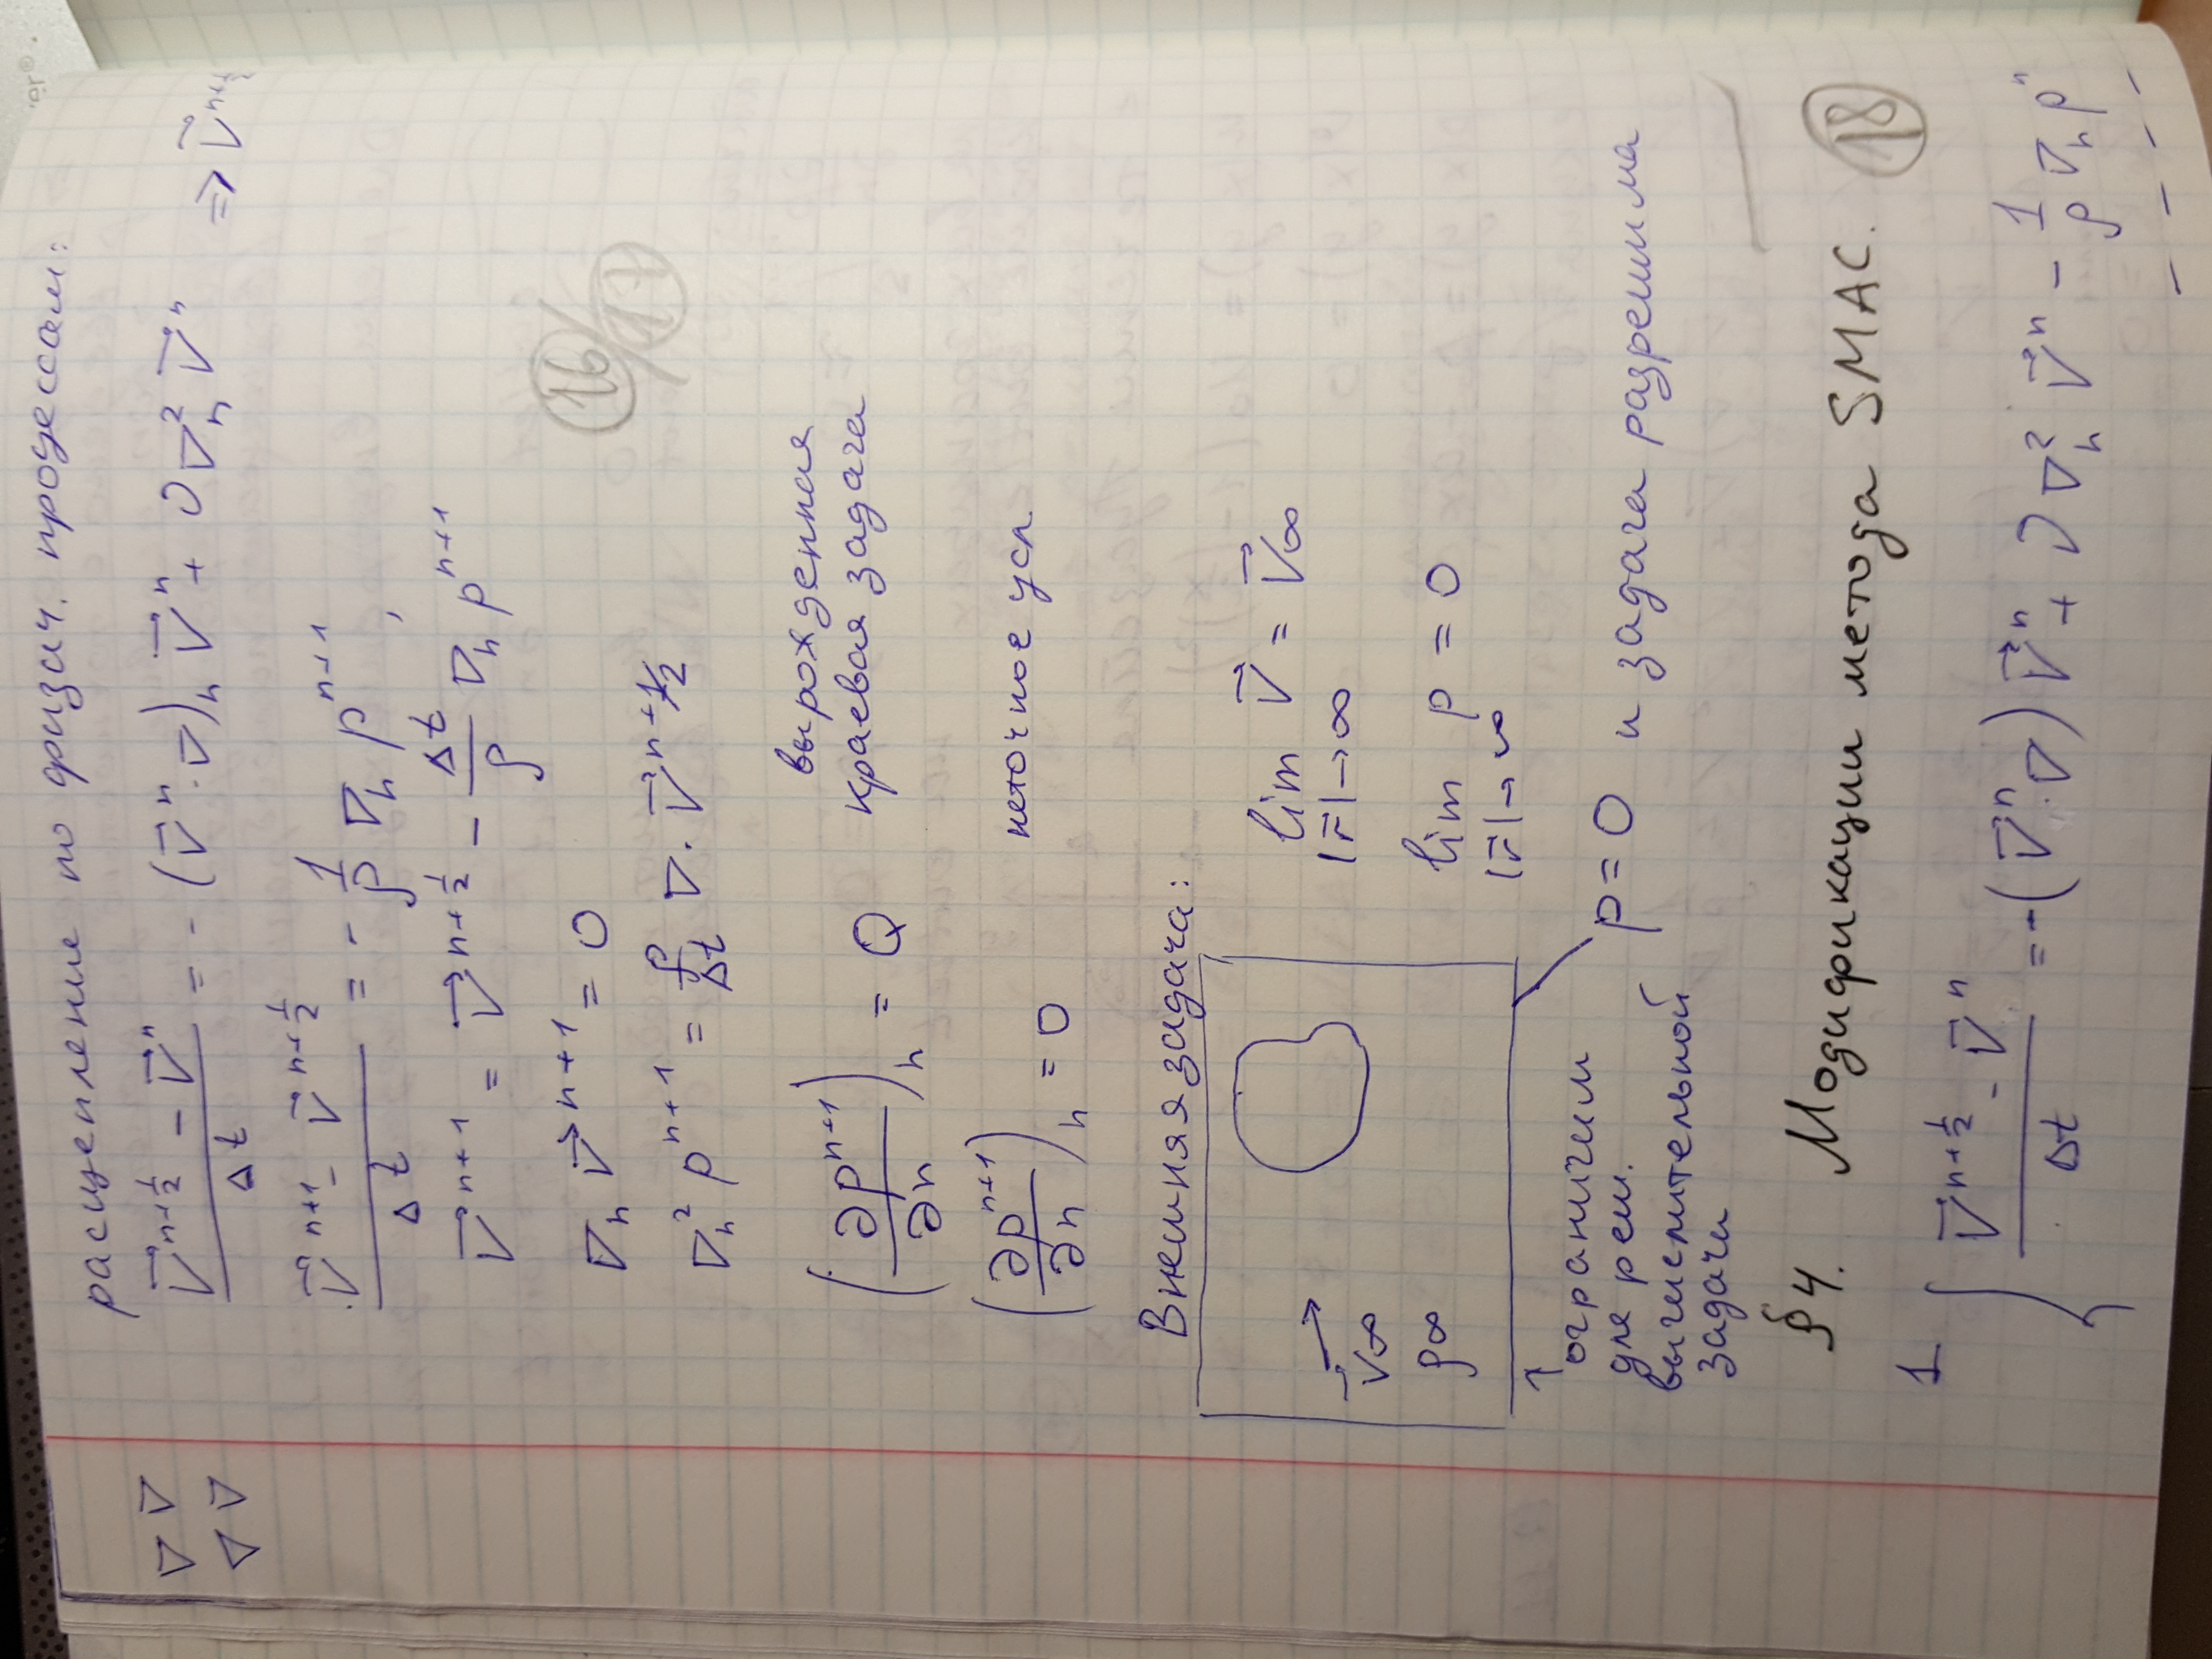 расщепление по физич. процессам:
∇ ∇
∇ ∇
(V⃗^{n+1/2} − V⃗^n)/Δt = −(V⃗^n·∇)_h V⃗^n + ν∇_h^2 V⃗^n ⇒ V⃗^{n+1/2}
(V⃗^{n+1} − V⃗^{n+1/2})/Δt = −1/ρ ∇_h p^{n+1},
V⃗^{n+1} = V⃗^{n+1/2} − Δt/ρ ∇_h p^{n+1}
∇_h V⃗^{n+1} = 0
16/17
∇_h^2 p^{n+1} = ρ/Δt ∇·V⃗^{n+1/2}
вырожденная
краевая задача
(∂p^{n+1}/∂n)_h = Q
(∂p^{n+1}/∂n)_h = 0 неточное усл.
Внешняя задача:
V⃗∞
ρ∞
lim V⃗ = V⃗∞
|r⃗|→∞
lim p = 0
|r⃗|→∞
↑
ограничим
для реш.
вычислительной
задачи
p=0 и задача разрешима
§4. Модификации метода SMAC. 18
1
{ (V⃗^{n+1/2} − V⃗^n)/Δt = −(V⃗^n·∇)V⃗^n + ν∇_h^2 V⃗^n − 1/ρ ∇_h p^n
– – – –